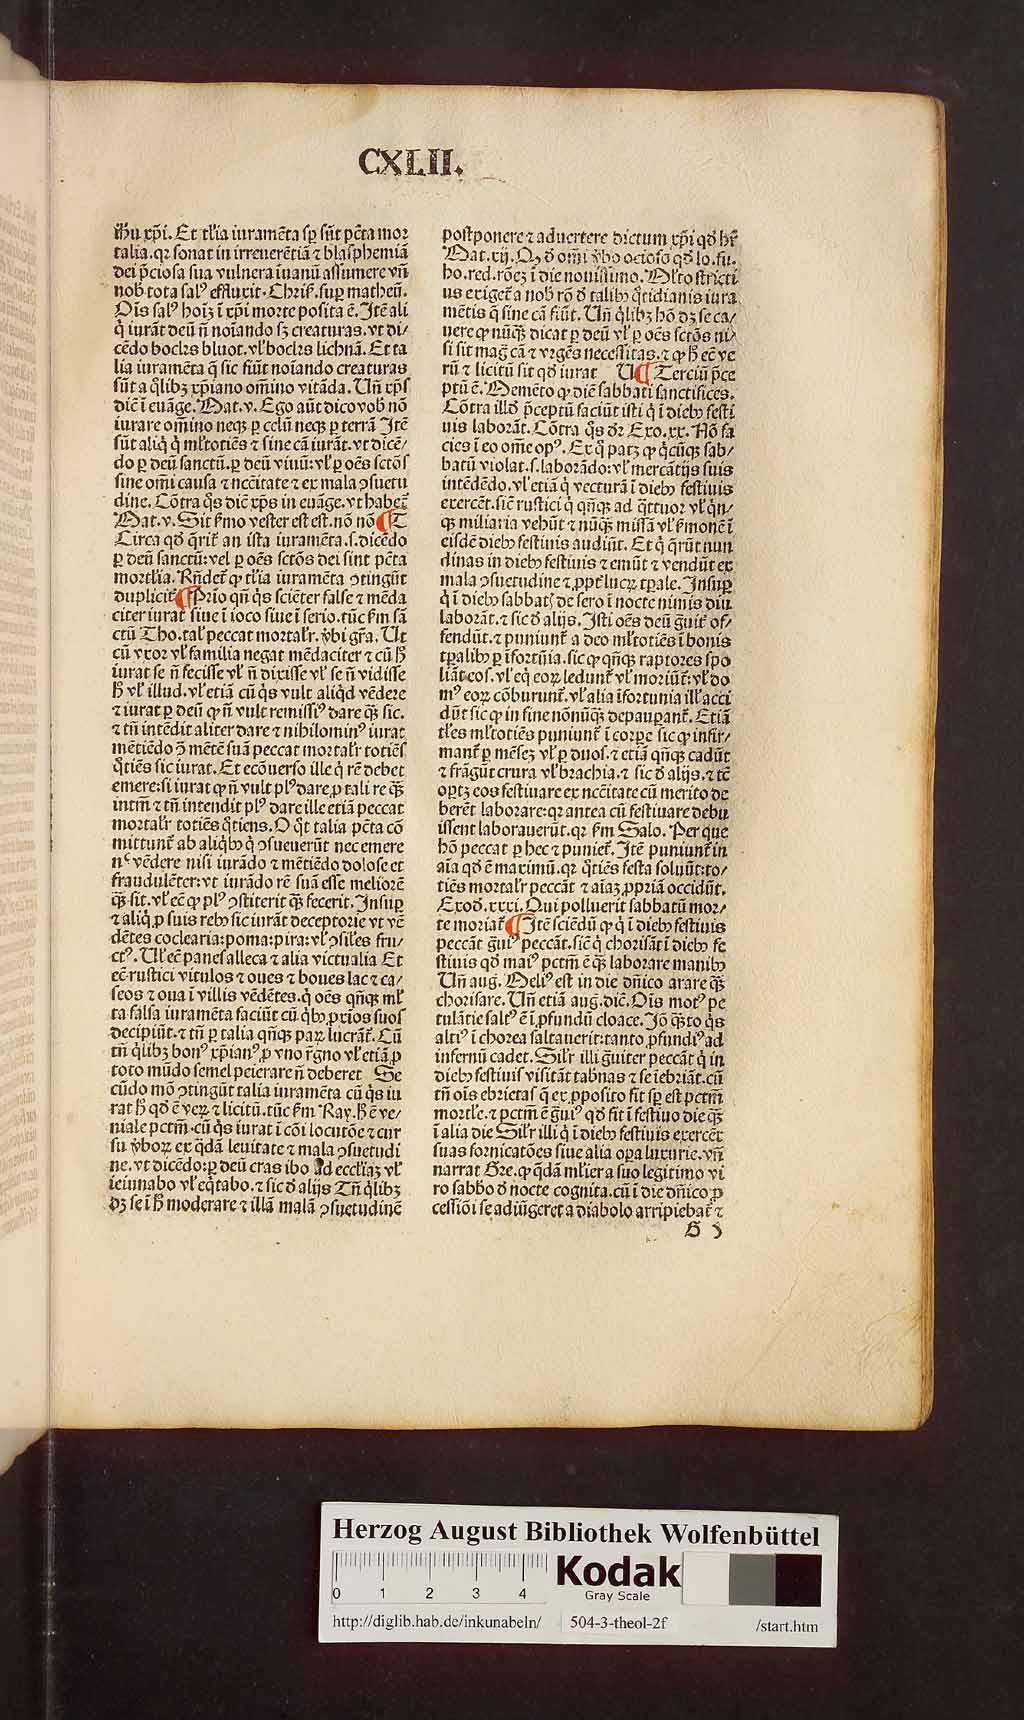 CXLII.
ihū xp̄i. Et tl̓ia iuramēta sp̱ sūt pc̄ta mor
talia. qr sonat in irreuerētiā ⁊ blasphemiā
dei p̄ciosa sua vulnera ī uanū assumere vn̄
nob tota salꝰ effluxit. Chris̄. suꝑ matheū.
Oīs salꝰ hoīꝫ ī xp̄i morte posita ē. Itē ali
q̇ iurāt deū n̄ noīando sꝫ creaturas. vt di/
cēdo bocks bluot. vl̓ bocks lichnā. Et ta
lia iuramēta q̄ sic fiūt noīando creaturas
sūt a q̇libꝫ xp̄iano om̄ino vitāda. Un̄ xp̄s
diē ī euāge. Mat. v. Ego aūt dico vob nō
iurare om̄ino neqꝫ ꝑ celū neqꝫ ꝑ terrā Itē
sūt aliq̇ q̇ ml̓totiēs ⁊ sine cā iurāt. vt dicē/
do ꝑ deū sanctū. ꝑ deū viuū: vl̓ ꝑ oēs sctōs
sine om̄i causa ⁊ nccītate ⁊ ex mala ꝯsuetu
dine. Cōtra q̇s diē xp̄s in euāge. vt habet̄
Mat. v. Sit s̓mo vester est est. nō nō ¶ T
Circa qd̓ q̄rit̄ an ista iuramēta. s. dicēdo
ꝑ deū sanctū: vel ꝑ oēs sctōs dei sint pc̄ta
mortl̓ia. Rn̄det̄ ꝙ tl̓ia iuramēta ꝯtingūt
duplicit̄ ¶ Prīo qn̄ q̇s sciēter false ⁊ mēda
citer iurat siue ī ioco siue ī serio. tūc s̓m sā
ctū Tho. tal̓ peccat mortal̓r. v̓bi gr̄a. Ut
cū vxor vl̓ familia negat mēdaciter ⁊ cū h̓
iurat se n̄ fecisse vl̓ n̄ dixisse vl̓ se n̄ vidisse
h̓ vl̓ illud. vl̓ etiā cū q̇s vult aliq̇d vēdere
⁊ iurat ꝑ deū ꝙ n̄ vult remissiꝰ dare qꝫ̄ sic.
⁊ tn̄ intēdit aliter dare ⁊ nihilominꝰ iurat
mētiēdo ꝯ̄ mētē suā peccat mortal̓r totiēs
q̊tiēs sic iurat. Et ecōuerso ille q̇ rē debet
emere: si iurat ꝙ n̄ vult plꝰ dare ꝓ tali re qꝫ̄
intm̄ ⁊ tn̄ intendit plꝰ dare ille etiā peccat
mortal̓r totiēs q̊tiens. O q̊t talia pc̄ta cō
mittunt̄ ab aliq̇bꝰ q̇ ꝯsueuerūt nec emere
nᶜ vēdere nisi iurādo ⁊ mētiēdo dolose et
fraudulēter: vt iurādo rē suā esse meliorē
qꝫ̄ sit. vl̓ eē ꝙ plꝰ ꝯstiterit qꝫ̄ fecerit. Insuꝑ
⁊ aliq̇ ꝓ suis rebꝰ sic iurāt deceptorie vt vē
dētes coclearia: poma: pira: vl̓ ꝯsiles fru/
ctꝰ. Ul̓ eē panes alleca ⁊ alia victualia Et
eē rustici vitulos ⁊ oues ⁊ boues lac ⁊ ca/
seos ⁊ oua ī villis vēdētes. q̇ oēs qn̄qꝫ ml̓
ta falsa iuramēta faciūt cū q̇bꝰ ꝓxīos suos
decipiūt. ⁊ tn̄ ꝑ talia qn̄qꝫ paꝝ lucrāt̄. Cū
tn̄ q̇libꝫ bonꝰ xp̄ianꝰ ꝓ vno r̓gno vl̓ etiā ꝓ
toto mūdo semel peierare n̄ deberet Se
cūdo mō ꝯtingūt talia iuramēta cū q̇s iu
rat h̓ qd̓ ē veꝝ ⁊ licitū. tūc s̓m Ray. h̓ ē ve/
niale pctm̄. cū q̇s iurat ī cōi locutōe ⁊ cur
su v̓boꝝ ex q̇dā leuitate ⁊ mala ꝯsuetudi
ne. vt dicēdo: ꝑ deū cras ibo ad eccl̓iaꝫ vl̓
ieiunabo vl̓ eq̇tabo. ⁊ sic d̓ alijs Tn̄ q̇libꝫ
dꝫ se ī h̓ moderare ⁊ illā malā ꝯsuetudinē
postponere ⁊ aduertere dictum xp̄i qd̓ hr̄
Mat. xij. Qꝫ d̓ om̄i v̓bo ocioso qd̓ lo. fu.
ho. red. rōeꝫ ī die nouissimo. Ml̓to stricti
us exiget̄ a nob rō d̓ talibꝰ q̇tidianis iura
mētis q̄ sine cā fiūt. Un̄ q̇libꝫ hō dꝫ se ca/
uere ꝙ nūqꝫ̄ dicat ꝑ deū vl̓ ꝑ oēs sctōs ni/
si sit mag̊ cā ⁊ vrgēs necessitas. ⁊ ꝙ h̓ eē ve
rū ⁊ licitū sit qd̓ iurat U ¶ Terciū p̄ce
ptū ē. Memēto ꝙ diē sabbati sanctifices.
Cōtra illd̓ p̄ceptū faciūt isti q̇ ī diebꝰ festi
uis laborāt. Cōtra q̇s dr̄ Exo. xx. Nō fa
cies ī eo om̄e opꝰ. Ex q̇ patꝫ ꝙ q̇cūqꝫ sab/
batū violat. s. laborādo: vl̓ mercātijs suis
intēdēdo. vl̓ etiā q̇ vecturā ī diebꝰ festiuis
exercēt. sic̄ rustici q̇ qn̄qꝫ ad q̇ttuor vl̓ q̇n/
qꝫ miliaria vehūt ⁊ nūqꝫ̄ missā vl̓ s̓monē ī
eisdē diebꝰ festiuis audiūt. Et q̇ q̄rūt nun
dinas in diebꝰ festiuis ⁊ emūt ⁊ vendūt ex
mala ꝯsuetudine ⁊ ꝓpt̄ lucꝝ tꝑale. Insuꝑ
q̇ ī diebꝰ sabbatꝭ de sero ī nocte nimis diu
laborāt. ⁊ sic d̓ alijs. Isti oēs deū g̊uit̄ of/
fendūt. ⁊ puniunt̄ a deo ml̓totiēs ī bonis
tꝑalibꝰ ꝑ īfortūia. sic ꝙ qn̄qꝫ raptores spo
liāt eos. vl̓ eq̇ eoꝝ ledunt̄ vl̓ moriūt̄: vl̓ do
mꝰ eoꝝ cōburunt̄. vl̓ alia īfortunia ill̓ acci
dūt sic ꝙ in fine nōnūqꝫ̄ depauꝑant̄. Etiā
tl̓es ml̓totiēs puniunt̄ ī corꝑe sic ꝙ infir/
mant̄ ꝑ mēseꝫ vl̓ ꝑ duos. ⁊ etiā qn̄qꝫ cadūt
⁊ frāgūt crura vl̓ brachia. ⁊ sic d̓ alijs. ⁊ tc̄
oꝑtꝫ eos festiuare ex nccītate cū merito de
berēt laborare: qr antea cū festiuare debu
issent laborauerūt. qr s̓m Salo. Per que
hō peccat ꝑ hec ⁊ puniet̄. Itē puniunt̄ in
aīa qd̓ ē maximū. qr q̊tiēs festa soluūt: to/
tiēs mortal̓r peccāt ⁊ aīaꝫ ꝓpriā occidūt.
Exod̓. xxxi. Qui polluerit sabbatū mor/
te moriat̄ ¶ Itē sciēdū ꝙ q̇ ī diebꝰ festiuis
peccāt g̊uiꝰ peccāt. sic̄ q̇ chorisāt ī diebꝰ fe
stiuis qd̓ maiꝰ pctm̄ ē qꝫ̄ laborare manibꝰ
Un̄ aug. Meliꝰ est in die dn̄ico arare qꝫ̄
chorisare. Un̄ etiā aug. diē. Oīs motꝰ pe
tulātie saltꝰ ē ī ꝓfundū cloace. Iō qꝫ̄to q̇s
altiꝰ ī chorea saltauerit: tanto ꝓfundiꝰ ad
infernū cadet. Sil̓r illi g̊uiter peccāt q̇ in
diebꝰ festiuis visitāt tab̓nas ⁊ se īebriāt. cū
tn̄ oīs ebrietas q̄ ex ꝓposito fit sꝑ est pctm̄
mortl̓e. ⁊ pctm̄ ē g̊uiꝰ qd̓ fit ī festiuo die qꝫ̄
ī alia die Sil̓r illi q̇ ī diebꝰ festiuis exercēt
suas fornicatōes siue alia oꝑa luxurie. vn̄
narrat Gre. ꝙ q̄dā ml̓ier a suo legitimo vi
ro sabbo d̓ nocte cognita. cū ī die dn̄ico ꝓ
cessiōi se adiūgeret a diabolo arripiebat̄ ⁊
Herzog August Bibliothek Wolfenbüttel
0 1 2 3 4
Kodak
Gray Scale
http://diglib.hab.de/inkunabeln/ 504-3-theol-2f /start.htm